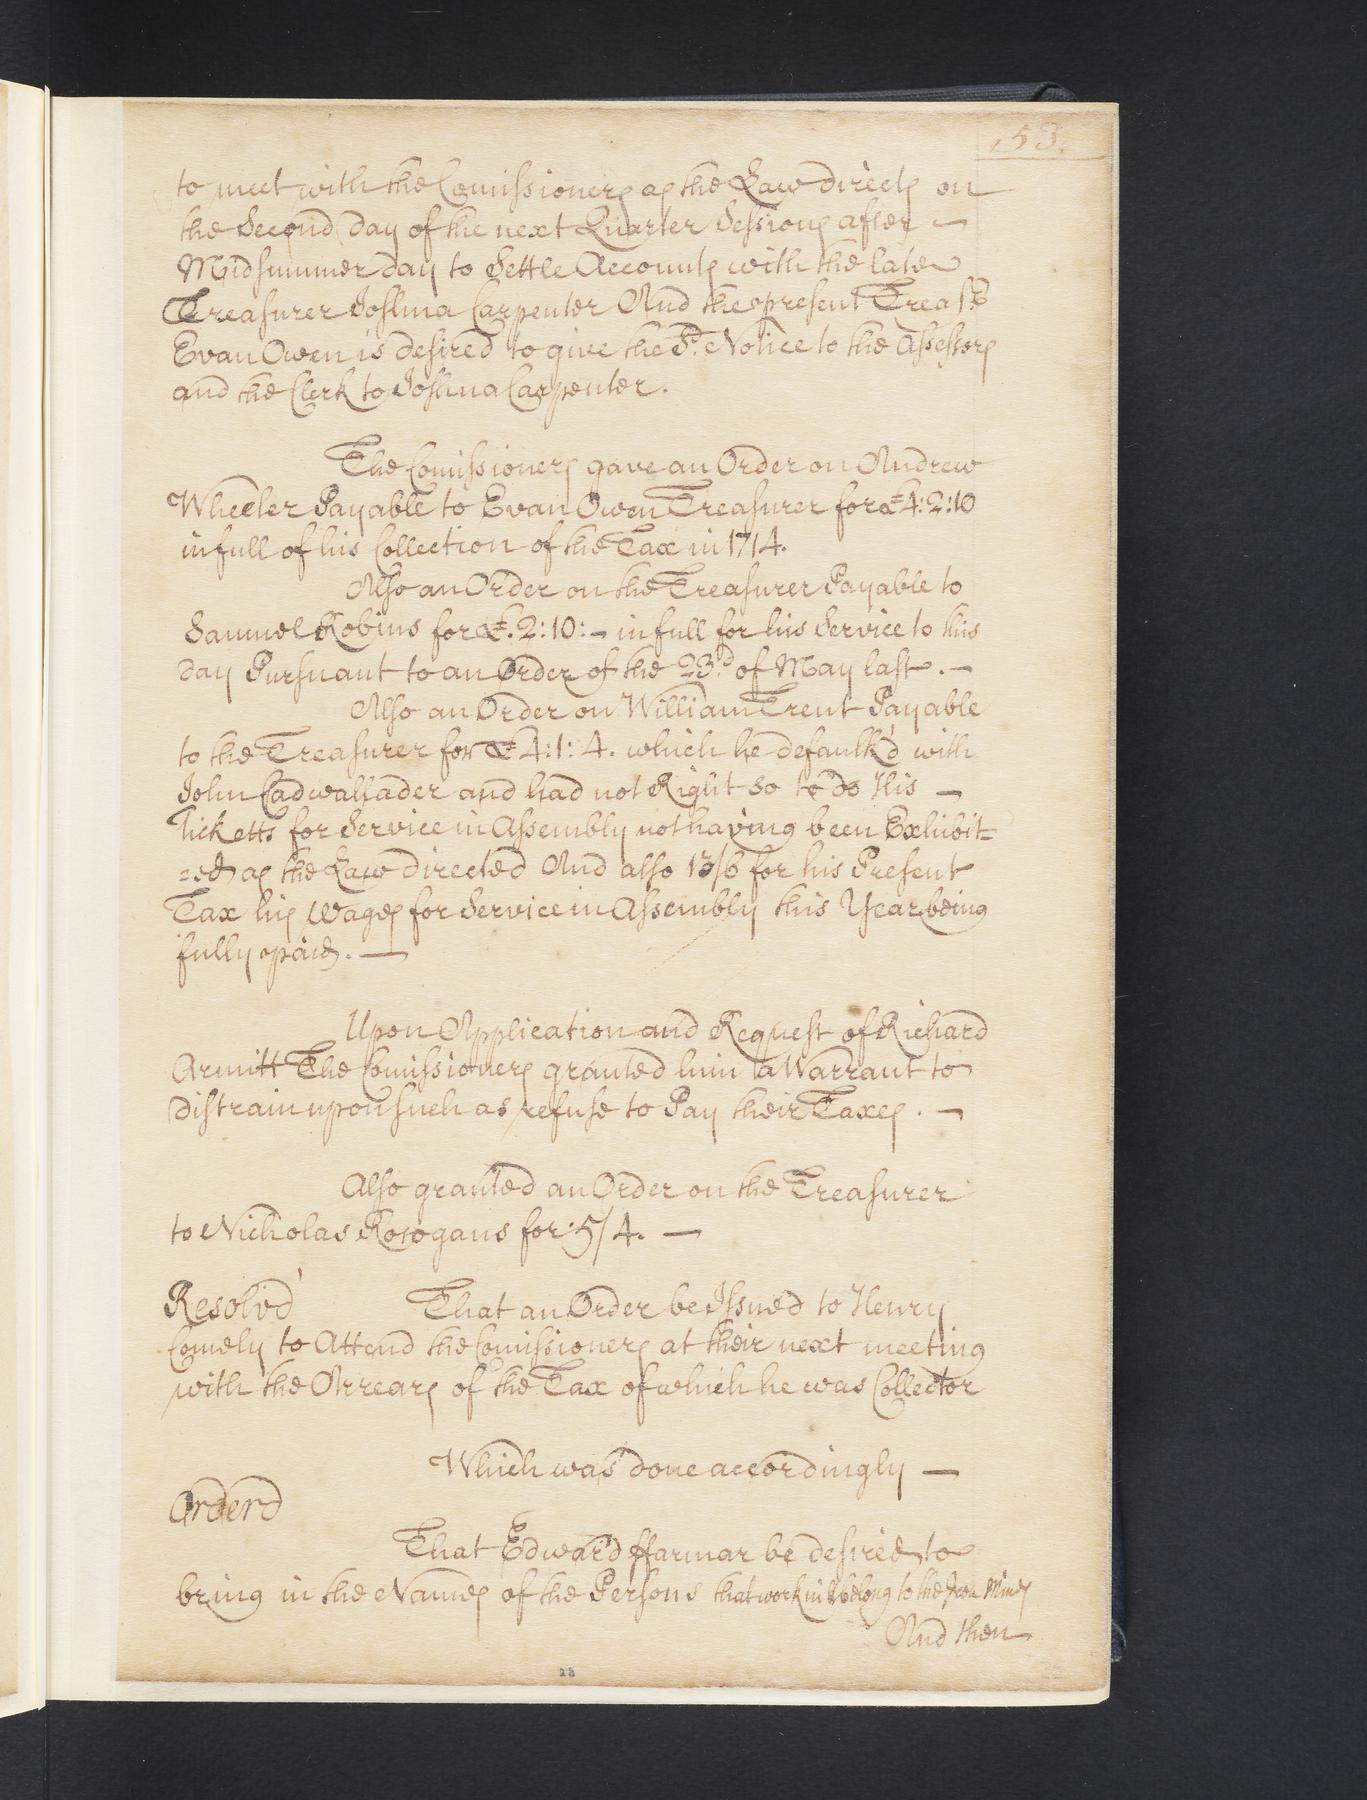 53.
to meet with the Comissioners as the Law directs on
the Second day of the next Quarter Sessions after —
Midsummer day to Settle Accounts with the late
Treasurer Joshua Carpenter And the present Treasr
Evan Owen is desired to give the Sd. Notice to the Assessors
and the Clerk to Joshua Carpenter.
The Comissioners gave an Order on Andrew
Wheeler Payable to Evan Owen Treasurer for £4:2:10
in full of his Collection of the Tax in 1714.
Also an Order on the Treasurer Payable to
Samuel Robins for £.2:10:— in full for his Service to this
day Pursuant to an Order of the 23d of May last. —
Also an Order on William Trent Payable
to the Treasurer for £4:1:4. which he defaulk'd with
John Cadwallader and had not Right so to do His —
Ticketts for Service in Assembly not having been Exhibit=
=ed as the Law directed And also 13/6 for his Present
Tax his Wages for Service in Assembly this Year being
fully paid. —
Upon Application and Request of Richard
Armitt The Comissioners granted him a Warrant to
distrain upon such as refuse to Pay their Taxes. —
Also granted an Order on the Treasurer
to Nicholas for 5/4. —
Resolvd That an Order be Issued to Henry
Comely to Attend the Comissioners at their next meeting
with the Arrears of the Tax of which he was Collector
Which was done accordingly —
Orderd
That Edward ffarmar be desired to
bring in the Names of the Persons that work in & belong to the Iron Mines
And then
28